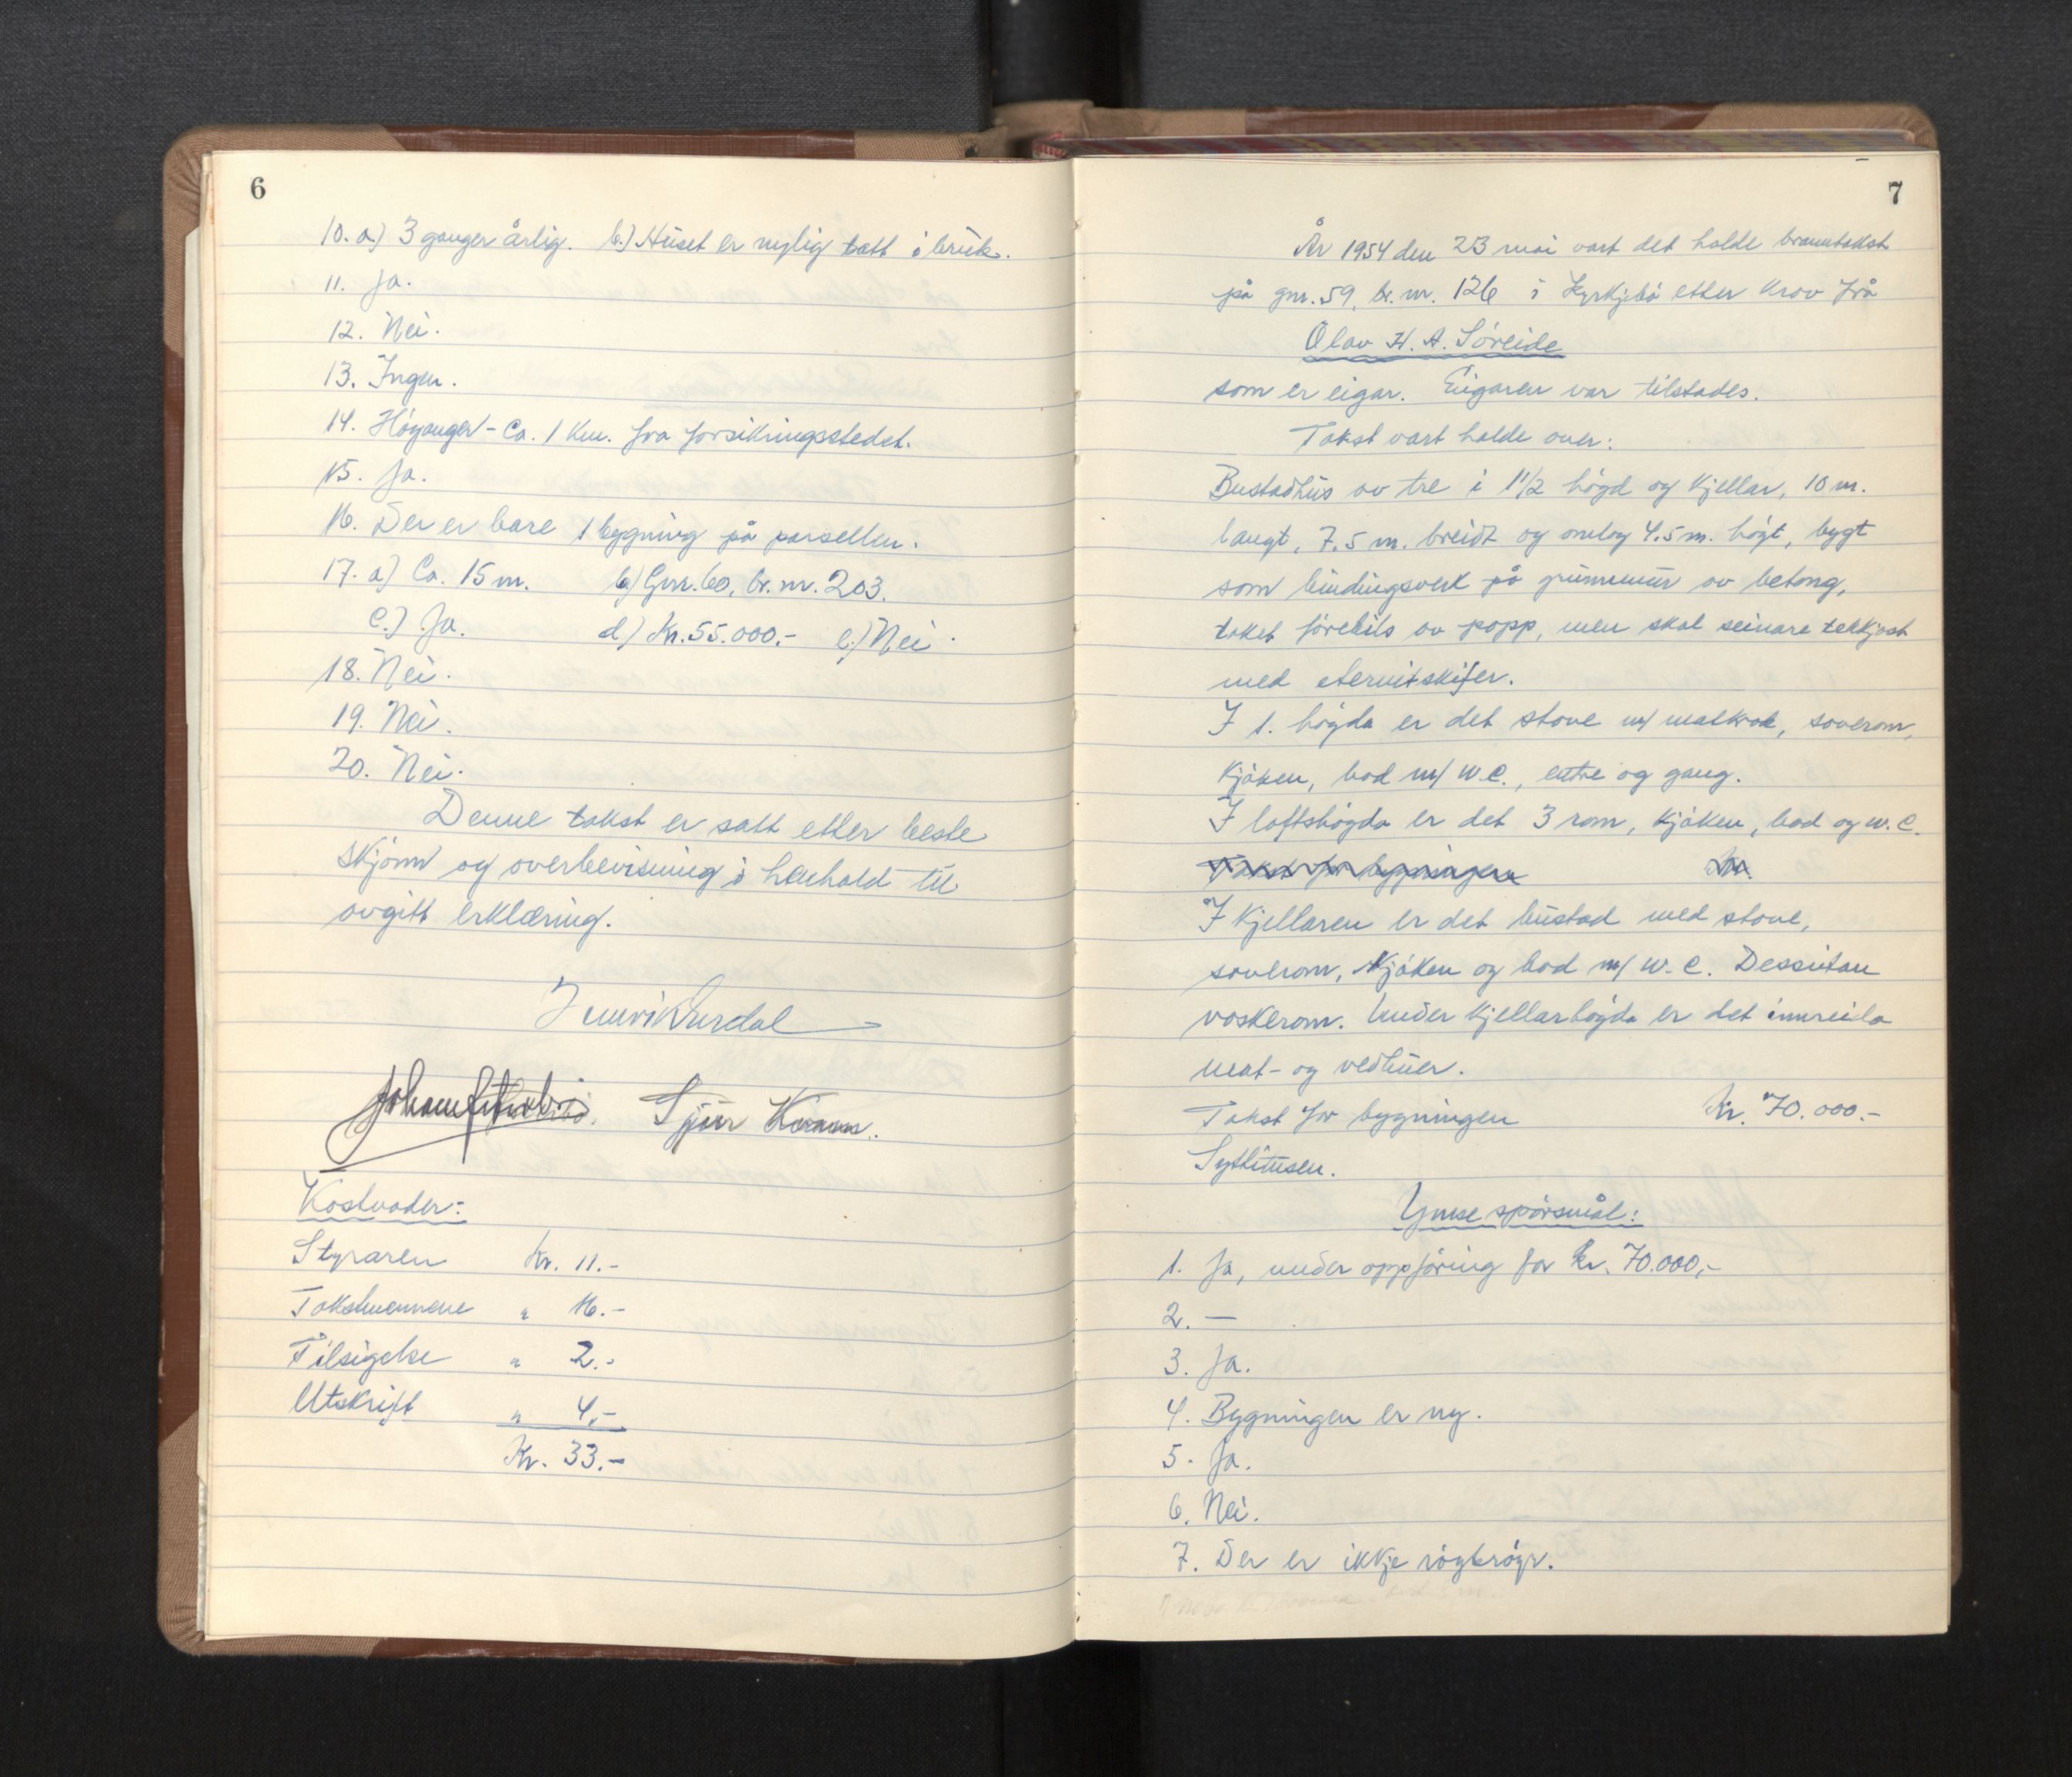 6
10. a.) 3 ganger årlig. b.) Huset er nylig tatt i bruk.
11. Ja.
12. Nei.
13. Ingen.
14. Höyanger - Ca. 1 km. fra forsikringsstedet.
15. Ja.
16. Der er bare 1 bygning på parsellen.
17. a) Ca. 15 m. b) Gnr. 60, br. nr. 203.
c.) Ja. d) Kr. 55.000.- e.) Nei.
18. Nei.
19. Nei.
20. Nei.
Denne takst er satt etter beste
skjönn og overbevisning i henhold til
avgitt erklæring.
Kostnader:
Styraren Kr. 11.-
Takstmennene " 16.-
Tilsigelse " 2.-
Utskrift " 4,-
Kr. 33.-
7
År 1954 den 23 mai vart det halde branntakst
på gnr. 59, br. nr. 126 i Kyrkjebö etter krav frå
Olav H. A. Söreide
som er eigar. Eigaren var tilstades.
Takst vart halde over:
Bustadhus av tre i 1 1/2 högd og kjellar, 10 m.
langt, 7.5 m. breidt og omlag 4.5 m. högt, bygt
som bindingsverk på grunnmur av betong,
taket förebils av papp, men skal seinare tekkjast
med eternitskifer.
I 1. högda er det stove m/ matkrok, soverom,
kjöken, bad m/ w.c., entre og gang.
I loftshögda er det 3 rom, kjöken, bad og w.c.
Takst for bygningen Kr.
I kjellaren er det bustad med stove,
soverom, kjöken og bad m/ w.c. Dessutan
vaskerom. Under kjellarhögda er det innreida
mat- og vedbuer.
Takst for bygningen Kr. 70.000.-
Syttitusen.
Ymse spörsmål:
1. Ja, under oppföring for kr. 70.000,-
2. —
3. Ja.
4. Bygningen er ny.
5. Ja.
6. Nei.
7. Der er ikkje rögkröyr.